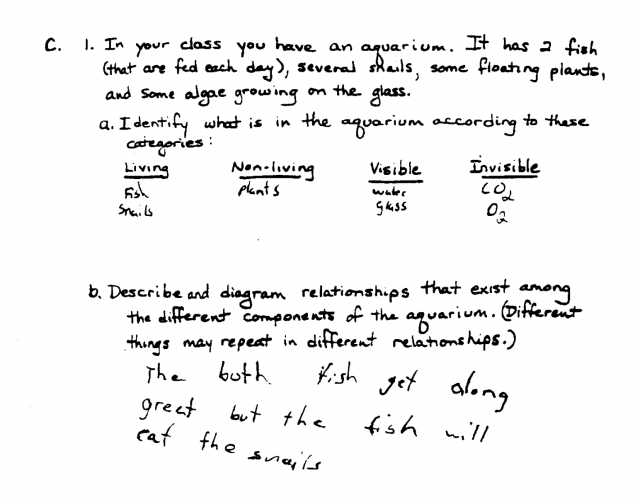 C. 1. In your class you have an aquarium. It has 2 fish
(that are fed each day), several snails, some floating plants,
and some algae growing on the glass.
a. Identify what is in the aquarium according to these
categories:
Living Non-living Visible Invisible
Fish plants water CO2
Snails glass O2
b. Describe and diagram relationships that exist among
the different components of the aquarium. (Different
things may repeat in different relationships.)
The both fish get along
great but the fish will
eat the snails